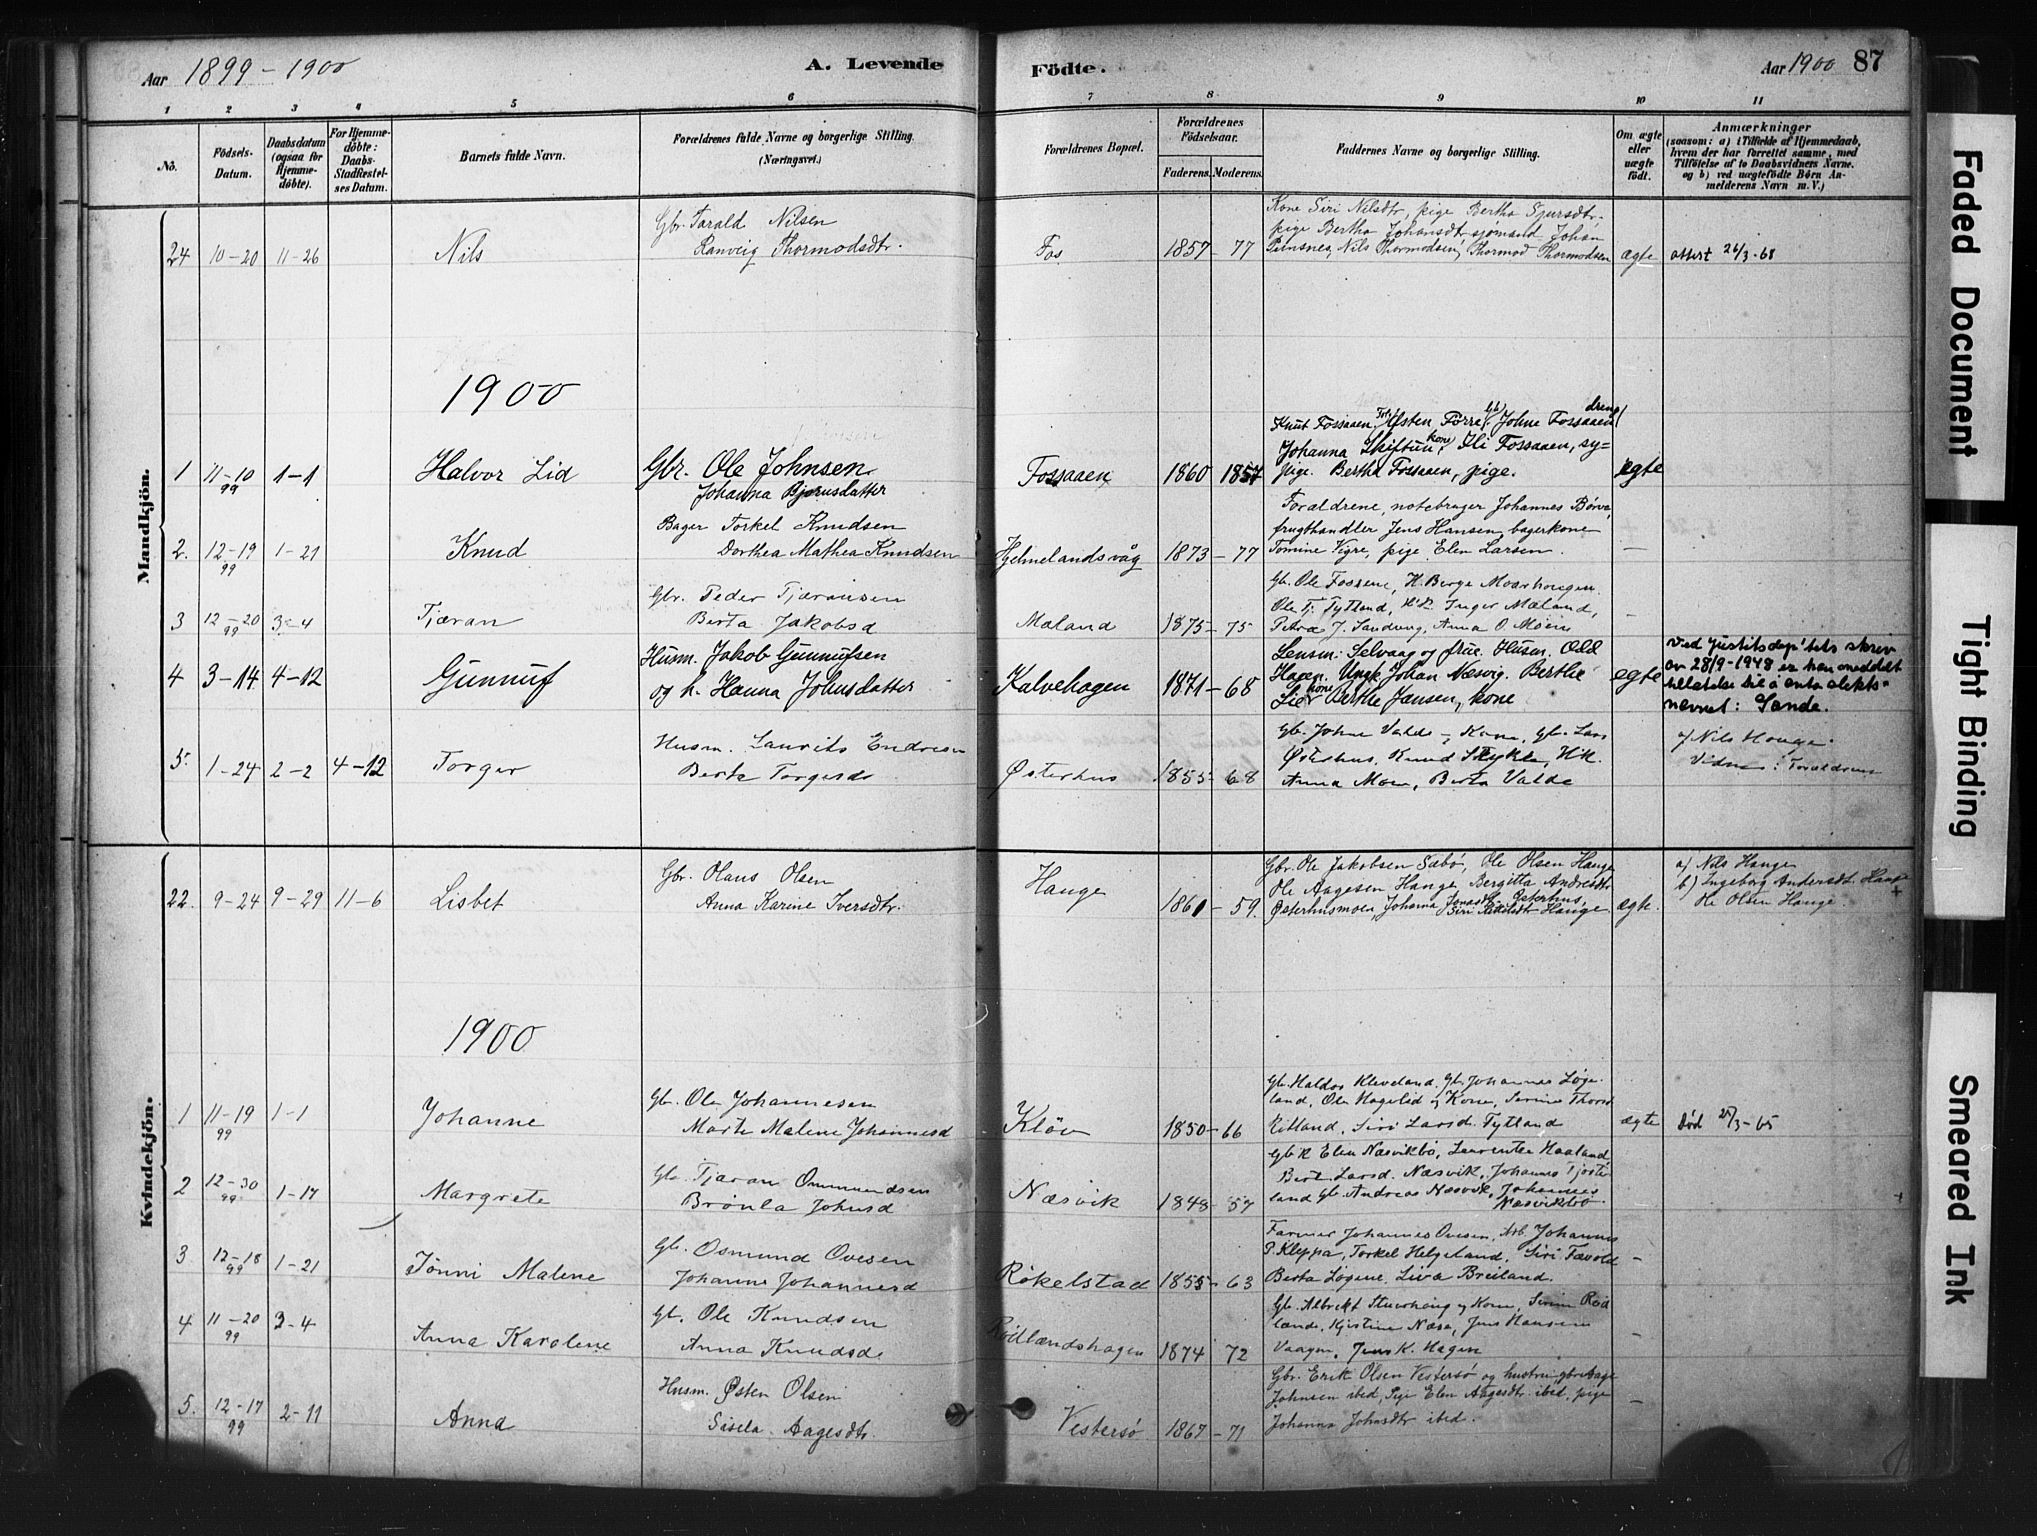 Aar 1899-1900
A. Levende
Födte.
Aar 1900 87
1 2 3 4 5 6 7 8 9 10 11
No.
Födsels-Datum.
Daabsdatum (ogsaa for Hjemmedöbte).
For Hjemmedöbte: Daabs-Stadfæstelses Datum.
Barnets fulde Navn.
Forældrenes fulde Navne og borgerlige Stilling.
(Næringsvei.)
Forældrenes Bopæl.
Forældrenes Födselsaar.
Faderens. Moderens.
Faddernes Navne og borgerlige Stilling.
Om ægte eller uægte födt.
Anmærkninger
(saasom: a) i Tilfælde af Hjemmedaab, hvem der har forrettet samme, med Tilföielse af to Daabsvidners Navne. og b) ved uægtefödte Börn Anmelderens Navn m. V.)
Mandkjön.
Gbr. Tarald Nilsen
Kone Siri Nilsdtr, pige Bertha Sjursdtr.
pige Bertha Johansdtr sjömand Johan
24 10-20 11-26 Nils Ranveig Thormodsdtr. Fos 1857-77 Nils Thormodsen, Thormod Thormodsen ægte attest 26/3-68
1900
Knut Fossaaen, Østen Förre, Gb. Johne Fossaaen dreng
Johanna Skiftun, kone, Ili Fossaaen, sy-
1 11-10 99 1-1 Halvor Lid Gbr. Ole Johnsen Fossaaen 1860 1857 pige. Bertha Fossaaen, pige. ægte
Johanna Bjørnsdatter
Bager Torkel Knudsen Foraldrene, notebruger Johannes Børve,
frugthandler Jens Hansen, bagerkone
2. 12-19 99 1-21 Knud Dorthea Mathea Knudsen Hjelmelandsvåg 1873-77 Tomine Vigre, pige Elen Larsen. —
Gbr. Peder Tjæransen Gb. Ole Fossene, H. Berge Moarhougen.
Ole Tj. Tytland, Inger Mæland,
3 12-20 99 3-4 Tjæran Berta Jakobsd Mæland 1875-75 Petra J. Sandvug, Anna O. Moen —
Husm. Jakob Gunnufsen Lensm: Selvaag og frue. Husm. Odd
4 3-14 4-12 Gunnuf og h. Hanna Johnsdatter Kalvehagen 1871-68 Hagen. Ungk. Johan Næsvig. Berthe ægte
Lier kone Berthe Jansen, kone
Ved justitsdep'tets skriv
av 28/9-1948 er han meddelt
tillatelse til å anta slekts-
navnet: Sande.
Husm. Laurits Endresen Gb. Johne Valde og Kone, Gb. Lars
5. 1-24 2-2 4-12 Torger Berta Torgersd Østerhus 1855-68 Østerhus, Knud Stykke, HK.
Anna Moen, Berta Valde
a/ Nils Hauge.
Vidner: Foraldrene
Kvindekjön.
Gbr. Olaus Olsen Gbr. Ole Jakobsen Sæbö, Ole Olsen Hauge
Ole Aagesen Hauge, Bergitta Andreasdtr.
22. 9-24 9-29 11-6 Lisbet Anna Karine Iversdtr. Hauge 1861-59. Østerhusmoen, Johanna Jonasdtr Østerhus, ægte.
Siri Hauge
a) Nils Hauge
b) Ingeborg Andersdt. Hauge +
Ole Olsen Hauge.
1900
Gb. Haldor Kleveland. Gb. Johannes Løge-
Gb. Ole Johannesen land, Ole Hagelid og Kone, Serine Thors
1 11-19 99 1-1 Johanne Marte Malene Johannesd Kløv 1850-66 Ritland, Siri Larsd. Tytland ægte Död 25/3-65
Gb K Elen Næsvikbö, Laurentse Haaland
Gb. Tjæran Ommundsen Berte Larsd. Næsvik, Johannes Tjöste-
2 12-30 99 1-17 Margrete Brönla Johnsd Næsvik 1848-57 land Gb. Andreas Næsvik, Johannes
Næsvikbö +
Gb. Osmund Ovesen Farmer Johannes Ovesen, Arb. Johannes
3 12-18 99 1-21 Jönni Malene Johanne Johannesd Rökelstad 1855-63 P. Kleppa, Torkel Helgeland. Siri Fævold —
Berta Løgene, Liva Breiland.
Gb. Ole Knudsen Gb. Albrekt Stuvohaug og Kone, Serine Rød
4 11-20 99 3-4 Anna Karolene Anna Knudsd. Roitlændshagen 1874 72 lande, Kjistine Næse, Jens Hansen —
Vaagen, Jens K. Hagen
Husm. Østen Olsen Gbr. Erik Olsen Vestersö og hustru, gbr. Aage
Johnsen ibid, Pige Elen Aagesdtr. ibid, pige
5. 12-17 99 2-11 Anna Sisela Aagesdtr. Vestersö 1867-71 Johanna Johnsdtr ibid. —
Faded Document
Tight Binding
Smeared Ink